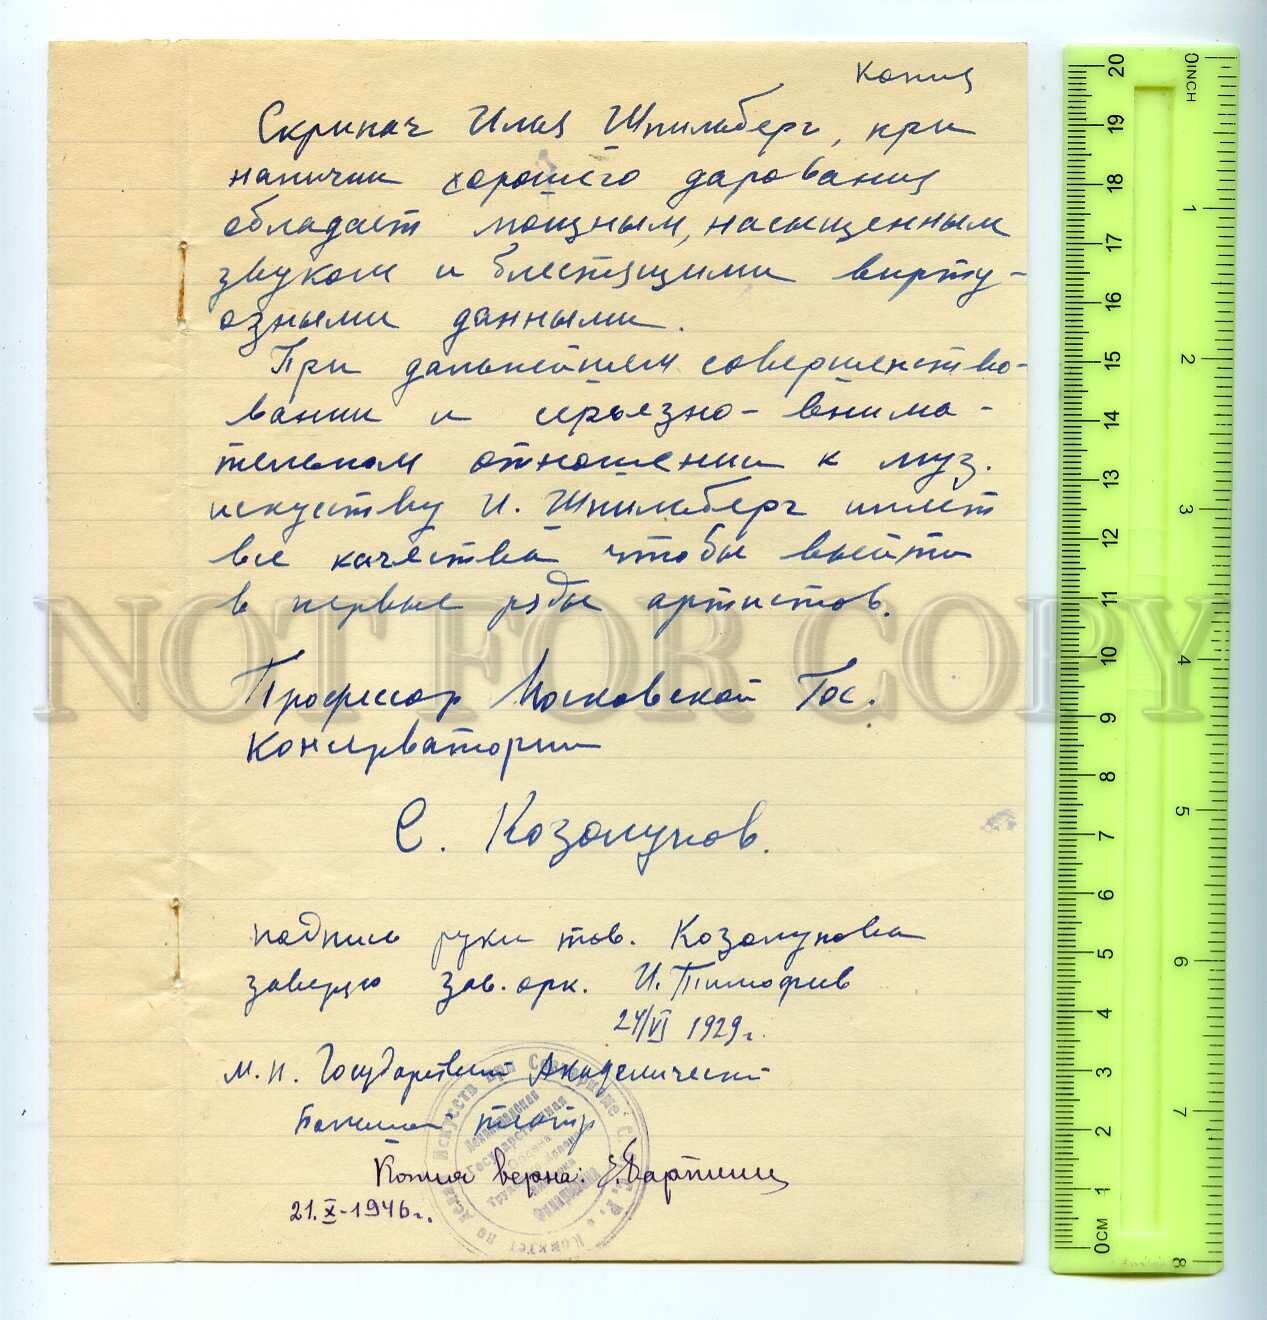 копия
Скрипач Илья Шпильберг, при
наличии хорошего дарования
обладает мощным, насыщенным
звуком и блестящими вирту-
озными данными.
При дальнейшем совершенство-
вании и серьезно-внима-
тельном отношении к муз.
искусству И. Шпильберг имеет
все качества чтобы выйти
в первые ряды артистов.
Профессор Московской Гос.
Консерватории
С. Козолупов.
подпись руки тов. Козолупова
заверяю зав. орк. И. Тимофеев
24/VI 1929 г.
М.П. Государствен Академический
Большой театр
Копия верна:
21.X-1946 г.
Комитет по делам Искусств при Совнаркоме С.С.С.Р.
Ленинградская
Государственная
Ордена
Трудового
Филармония
NOT FOR COPY
INCH
0 1 2 3 4 5 6 7 8
20 19 18 17 16 15 14 13 12 11 10 9 8 7 6 5 4 3 2 1 0
CM